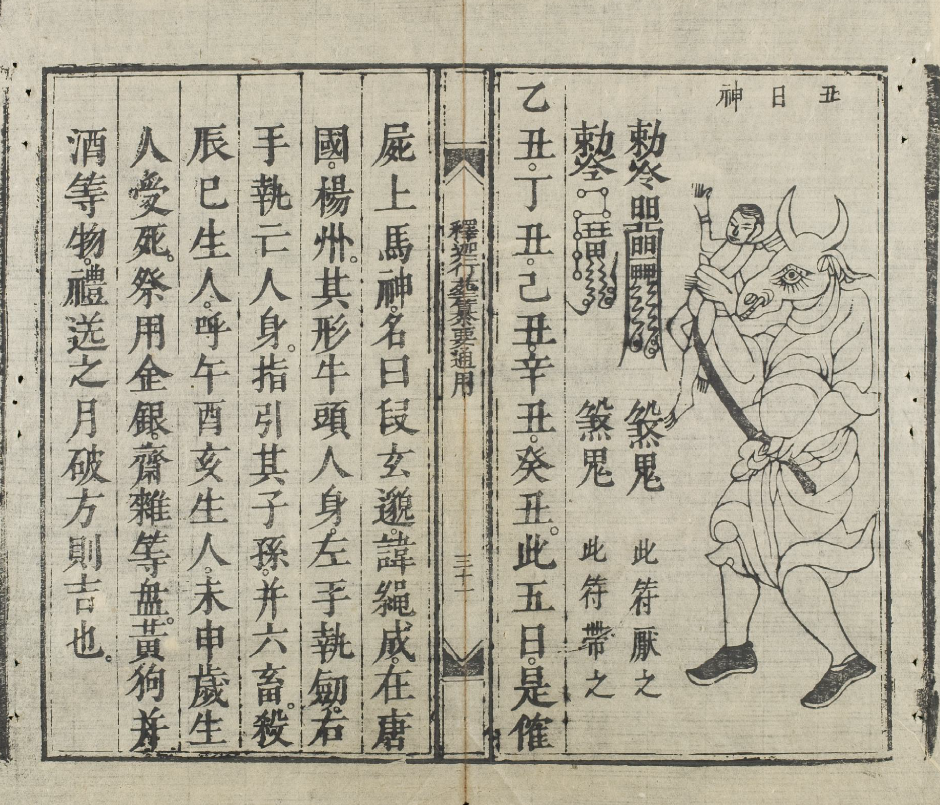 丑日神
勅令
煞鬼 此符厭之
勅令
煞鬼 此符帶之
乙丑。丁丑。己丑。辛丑。癸丑。此五日。是催
釋迦行𦭜纂要通用
三十一
屍上馬神。名曰段玄邈。諱䋲威。在唐
國。楊州。其形牛頭人身。左手執劒。右
手執二人身。指引其子孫。并六畜。殺
辰巳生人。呼午酉亥生人。未申歲生
人受死。祭用金銀。齋雜等盘。黃狗并
酒等物。禮送之月破方則吉也。